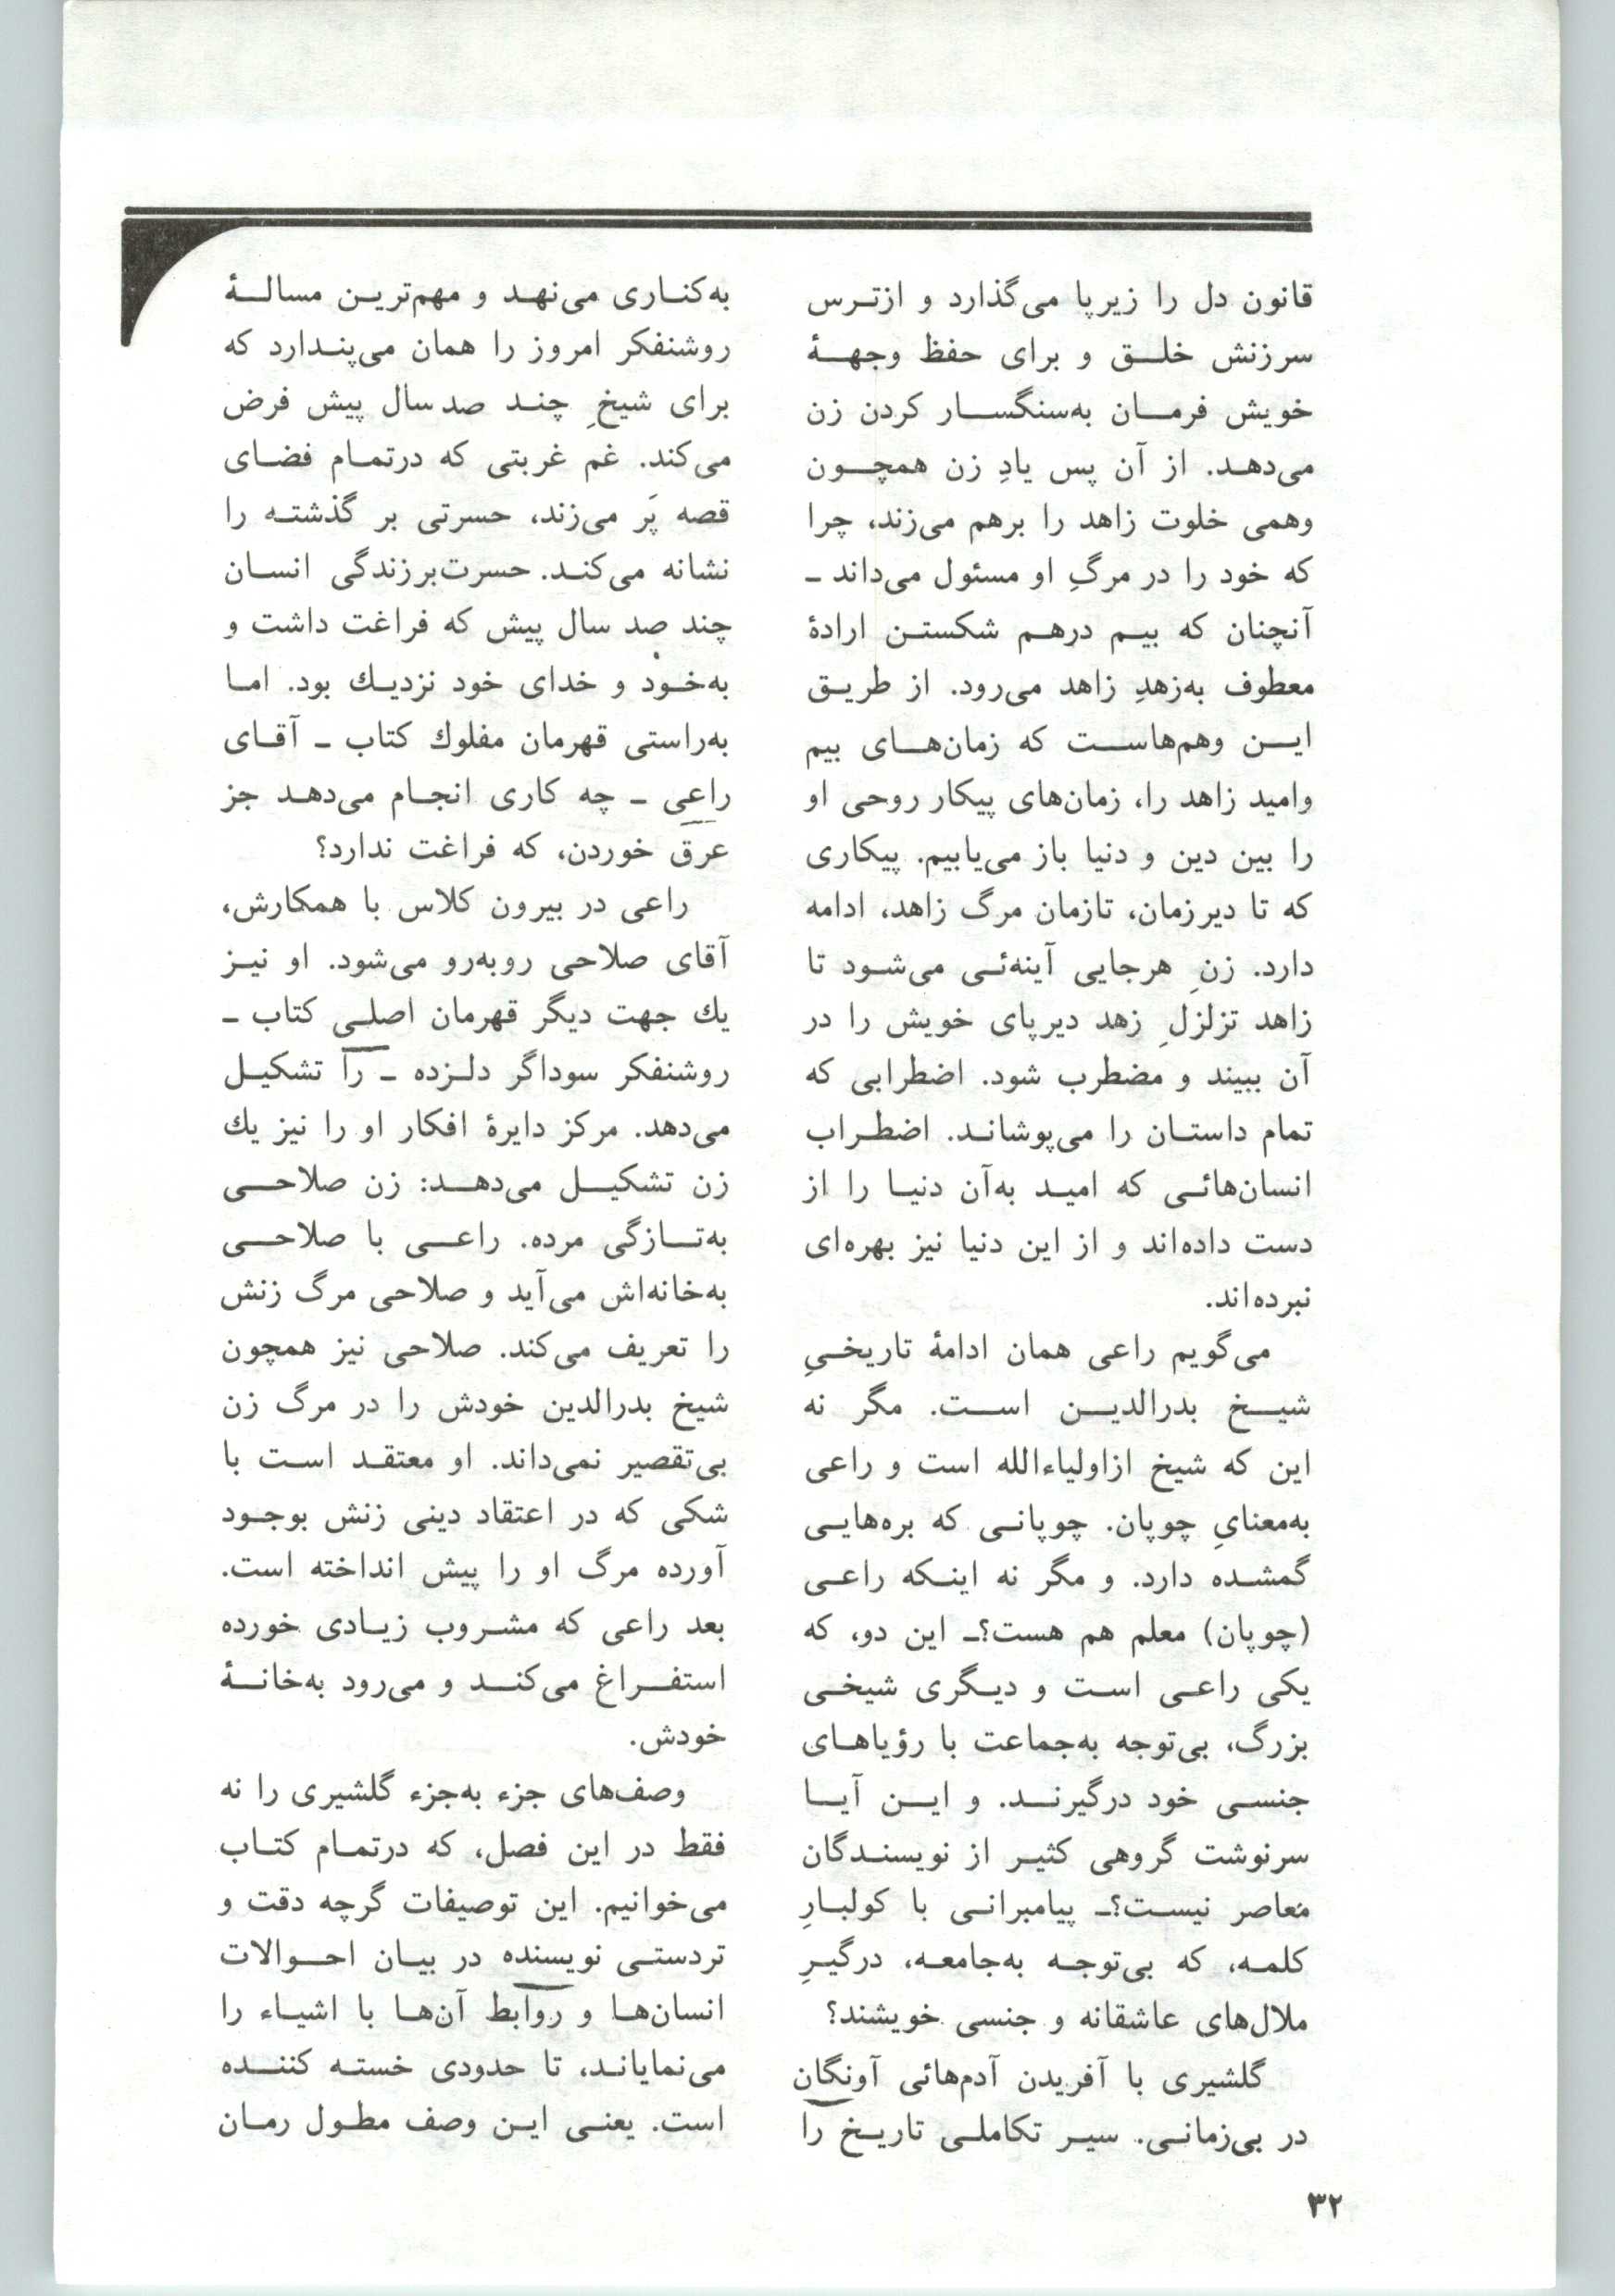 قانون دل را زیرپا می‌گذارد و ازترس
سرزنش خلق و برای حفظ وجههٔ
خویش فرمان به‌سنگسار کردن زن
می‌دهد. از آن پس یادِ زن همچون
وهمی خلوت زاهد را برهم می‌زند، چرا
که خود را در مرگِ او مسئول می‌داند ـ
آنچنان که بیم درهم شکستن ارادهٔ
معطوف به‌زهدِ زاهد می‌رود. از طریق
این وهم‌هاست که زمان‌های بیم
وامید زاهد را، زمان‌های پیکار روحی او
را بین دین و دنیا باز می‌یابیم. پیکاری
که تا دیرزمان، تازمان مرگ زاهد، ادامه
دارد. زنِ هرجایی آینه‌ئی می‌شود تا
زاهد تزلزلِ زهد دیرپای خویش را در
آن ببیند و مضطرب شود. اضطرابی که
تمام داستان را می‌پوشاند. اضطراب
انسان‌هائی که امید به‌آن دنیا را از
دست داده‌اند و از این دنیا نیز بهره‌ای
نبرده‌اند.
می‌گویم راعی همان ادامهٔ تاریخیِ
شیخ بدرالدین است. مگر نه
این که شیخ ازاولیاءالله است و راعی
به‌معنایِ چوپان. چوپانی که بره‌هایی
گمشده دارد. و مگر نه اینکه راعی
(چوپان) معلم هم هست؟ـ این دو، که
یکی راعی است و دیگری شیخی
بزرگ، بی‌توجه به‌جماعت با رؤیاهای
جنسی خود درگیرند. و این آیا
سرنوشت گروهی کثیر از نویسندگان
معاصر نیست؟ـ پیامبرانی با کولبارِ
کلمه، که بی‌توجه به‌جامعه، درگیرِ
ملال‌های عاشقانه و جنسی خویشند؟
گلشیری با آفریدن آدم‌هائی آونگان
در بی‌زمانی. سیر تکاملی تاریخ را
به‌کناری می‌نهد و مهم‌ترین مسالهٔ
روشنفکر امروز را همان می‌پندارد که
برای شیخِ چند صد سال پیش فرض
می‌کند. غم غربتی که درتمام فضای
قصه پَر می‌زند، حسرتی بر گذشته را
نشانه می‌کند. حسرت‌برزندگی انسان
چند صد سال پیش که فراغت داشت و
به‌خود و خدای خود نزدیك بود. اما
به‌راستی قهرمان مفلوك کتاب ـ آقای
راعی ـ چه کاری انجام می‌دهد جز
عرق خوردن، که فراغت ندارد؟
راعی در بیرون کلاس با همکارش،
آقای صلاحی روبه‌رو می‌شود. او نیز
یك جهت دیگر قهرمان اصلی کتاب ـ
روشنفکر سوداگر دلزده ـ را تشکیل
می‌دهد. مرکز دایرهٔ افکار او را نیز یك
زن تشکیل می‌دهد: زن صلاحی
به‌تازگی مرده. راعی با صلاحی
به‌خانه‌اش می‌آید و صلاحی مرگ زنش
را تعریف می‌کند. صلاحی نیز همچون
شیخ بدرالدین خودش را در مرگ زن
بی‌تقصیر نمی‌داند. او معتقد است با
شکی که در اعتقاد دینی زنش بوجود
آورده مرگ او را پیش انداخته است.
بعد راعی که مشروب زیادی خورده
استفراغ می‌کند و می‌رود به‌خانهٔ
خودش.
وصف‌های جزء به‌جزء گلشیری را نه
فقط در این فصل، که درتمام کتاب
می‌خوانیم. این توصیفات گرچه دقت و
تردستی نویسنده در بیان احوالات
انسان‌ها و روابط آن‌ها با اشیاء را
می‌نمایاند، تا حدودی خسته کننده
است. یعنی این وصف مطول رمان
۳۲